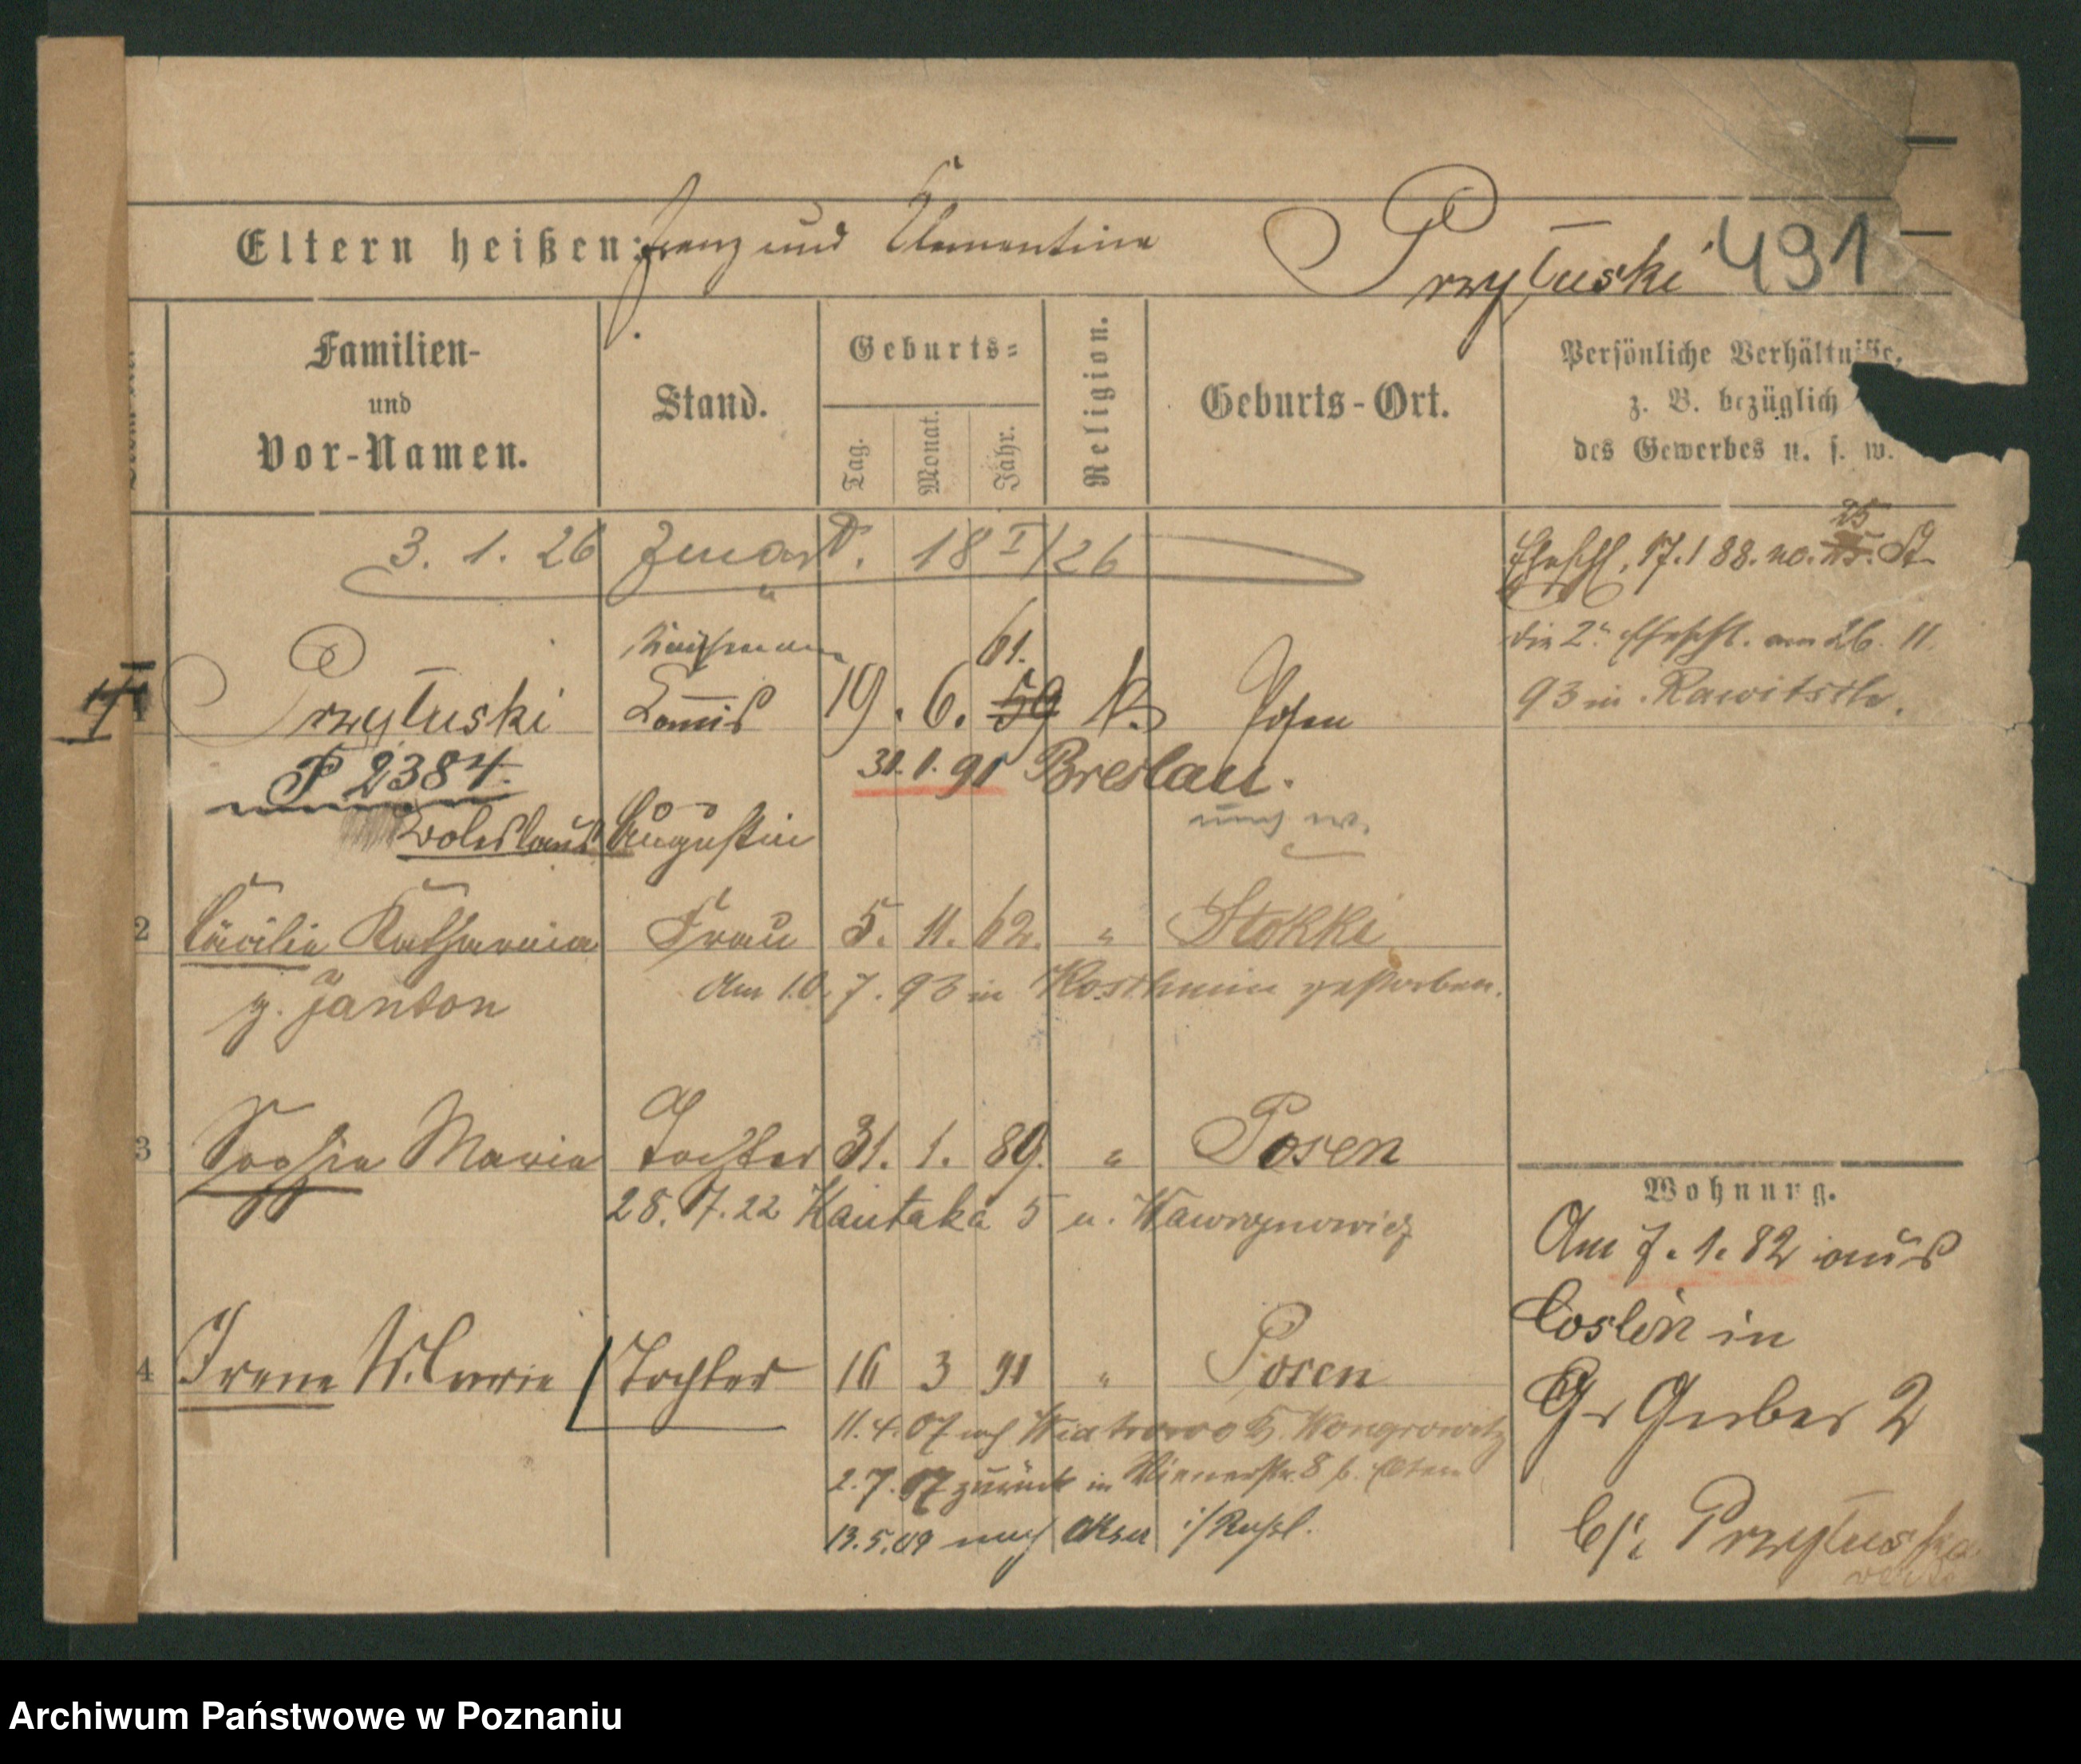 Eltern heißen: Franz und Clementina Przyłuski 491
Familien-
und
Vor-Namen.
Stand.
Geburts-
Tag.
Monat.
Jahr.
Religion.
Geburts-Ort.
Persönliche Verhältnisse,
z. B. bezüglich
des Gewerbes u. s. w.
3. 1. 26 Zmarł. 18 I/26
25
Ehschl. 17.1 88. no. St
Kaufmann 61.
die 2. Ehschl. am 26. 11.
93 in Rawitsch.
1 Przyłuski Commis 19. 6. 59 k. Posen
P 2384. 31.1.91 Breslau.
Boleslaus Augustin
2 Cäcilie Katharina Frau 5. 11. 62. " Stokki
g. Janton Am 10. 7. 93 in Koschmin gestorben.
3 Sophia Maria Tochter 31. 1. 89. " Posen
28. 7. 22 Kantaka 5 u. Wawrzynowicz
Wohnung.
Am 7. 1. 82 aus
Coslin in
Gr Gerber 2
b/: Przyłuska
4 Irene Tochter 16 3 91 " Posen
11. 4. 07 nach Wiatrowo Wongrowitz
2. 7. 07 zurück in Wienerstr. 8 b. Eltern
13. 5. 09 nach i/Rußl.
Archiwum Państwowe w Poznaniu